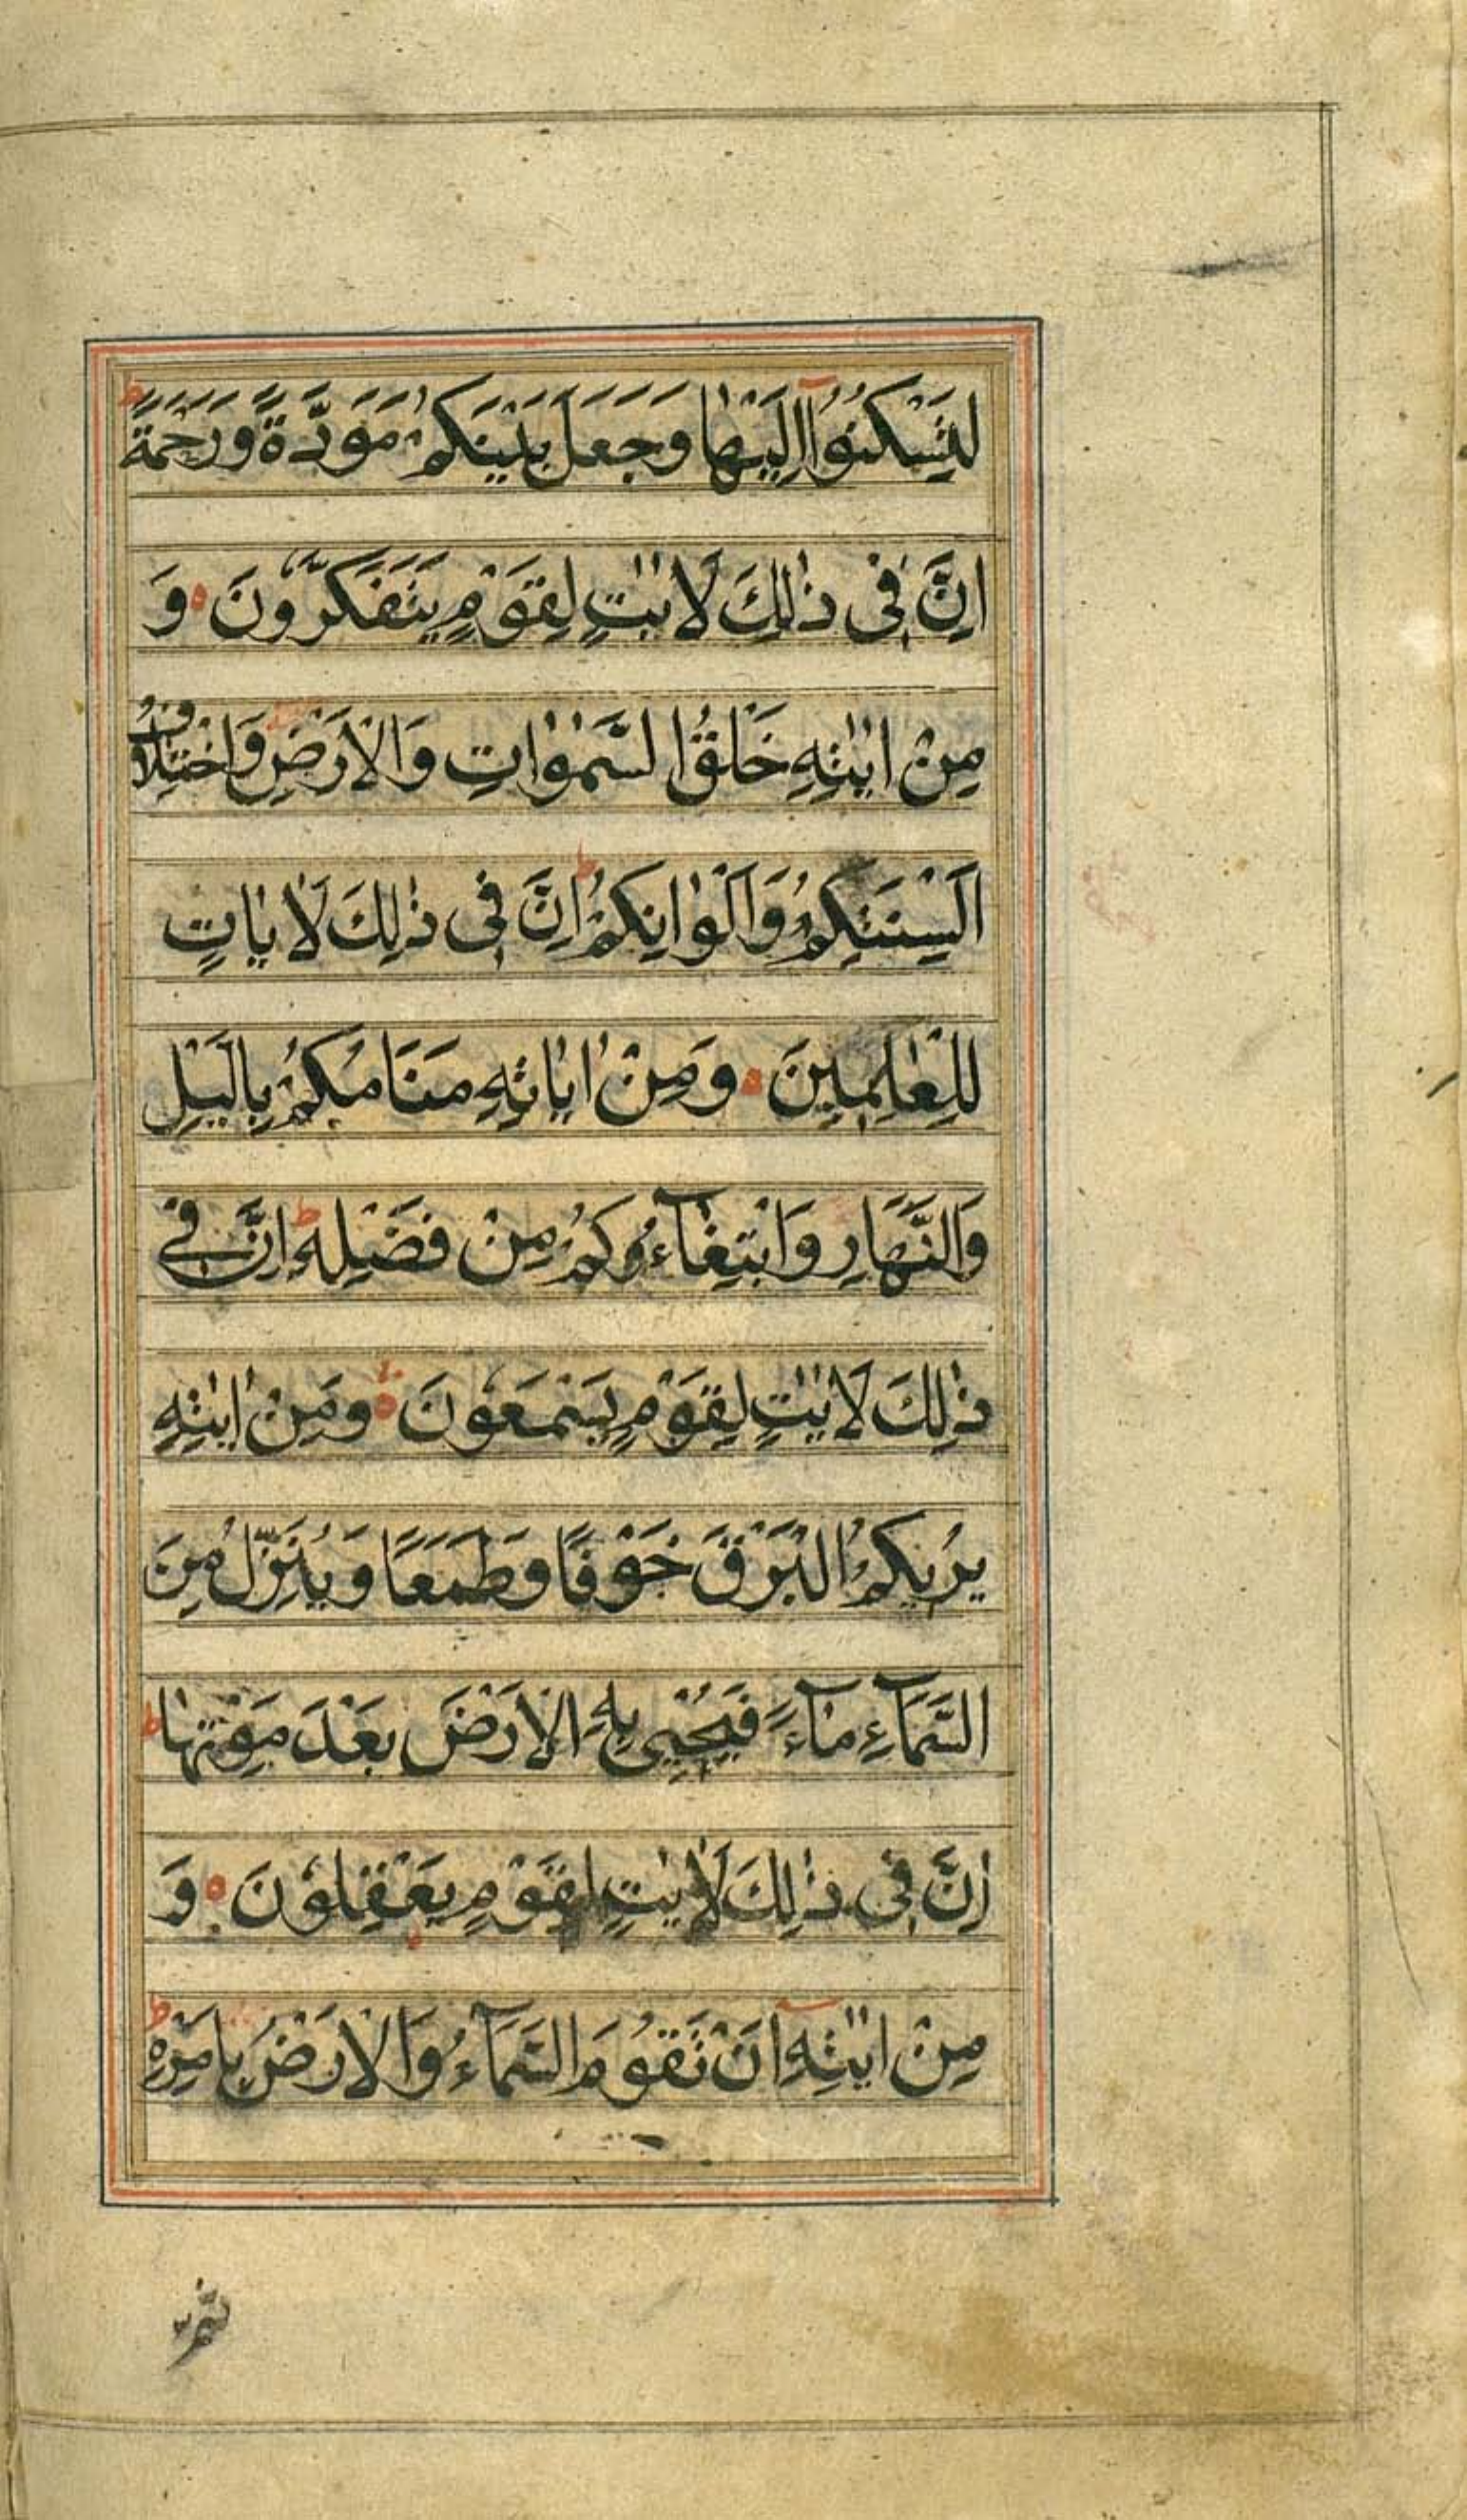 لِتَسْكُنُوْٓا اِلَيْهَا وَجَعَلَ بَيْنَكُمْ مَوَدَّةً وَرَحْمَةً ط
اِنَّ فِى ذٰلِكَ لَاٰيٰتٍ لِقَوْمٍ يَتَفَكَّرُونَ ه وَ
مِنْ اٰيٰتِهٖ خَلْقُ السَّمٰوٰاتِ وَالْاَرْضِ وَاخْتِلَافُ
اَلْسِنَتِكُمْ وَاَلْوٰانِكُمْ ط اِنَّ فِى ذٰلِكَ لَاٰيَاتٍ
لِلْعٰلِمِينَ ه وَمِنْ اٰيَاتِهٖ مَنَامُكُمْ بِالَّيْلِ
وَالنَّهَارِ وَابْتِغَآءُوكُمْ مِنْ فَضْلِهٖ ط اِنَّ فِى
ذٰلِكَ لَاٰيٰتٍ لِقَوْمٍ يَسْمَعُونَ ه وَمِنْ اٰيٰتِهٖ
يُرِيكُمُ الْبَرْقَ خَوْفًا وَطَمَعًا وَيُنَزِّلُ مِنَ
السَّمَآءِ مَآءً فَيُحْيِى بِهِ الْاَرْضَ بَعْدَ مَوْتِهَا ط
اِنَّ فِى ذٰلِكَ لَاٰيٰتٍ لِقَوْمٍ يَعْقِلُونَ ه وَ
مِنْ اٰيٰتِهٖٓ اَنْ تَقُومَ السَّمَآءُ وَالْاَرْضُ بِاَمْرِهٖ ط